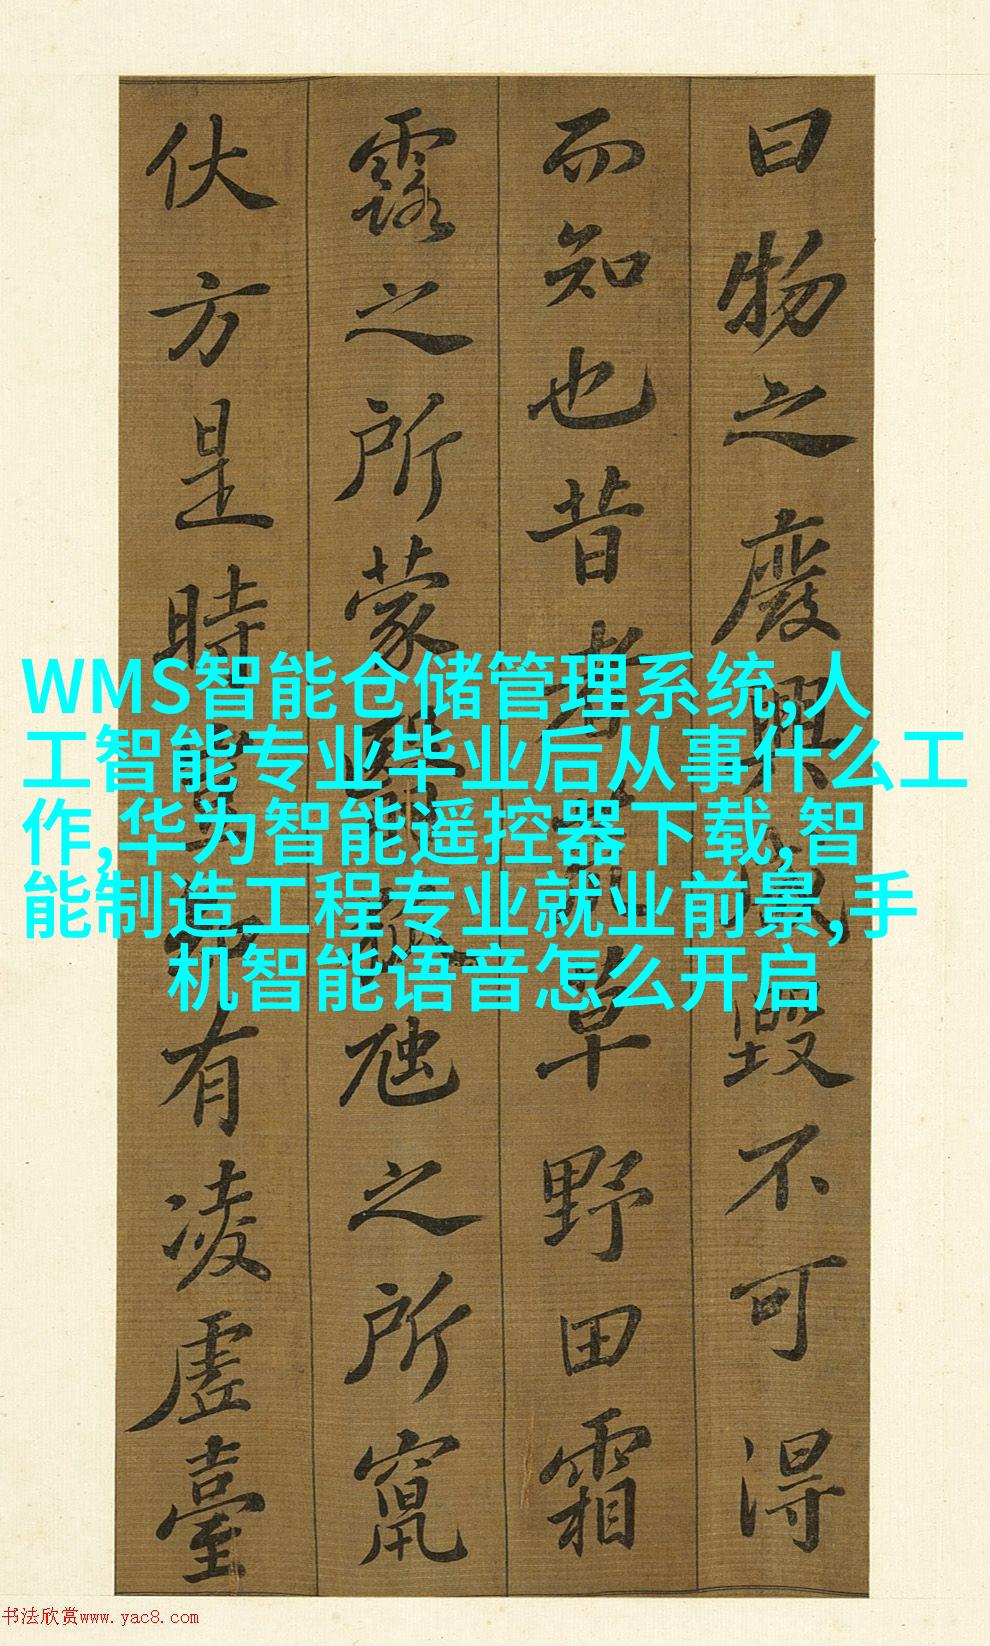 曰物之廢興成毀不可得
而知也昔者荒草野田霜
露之所蒙翳狐虺之所竄
伏方是時豈知有凌虛臺
WMS智能仓储管理系统,人
工智能专业毕业后从事什么工
作,华为智能遥控器下载,智
能制造工程专业就业前景,手
机智能语音怎么开启
书法欣赏www.yac8.com